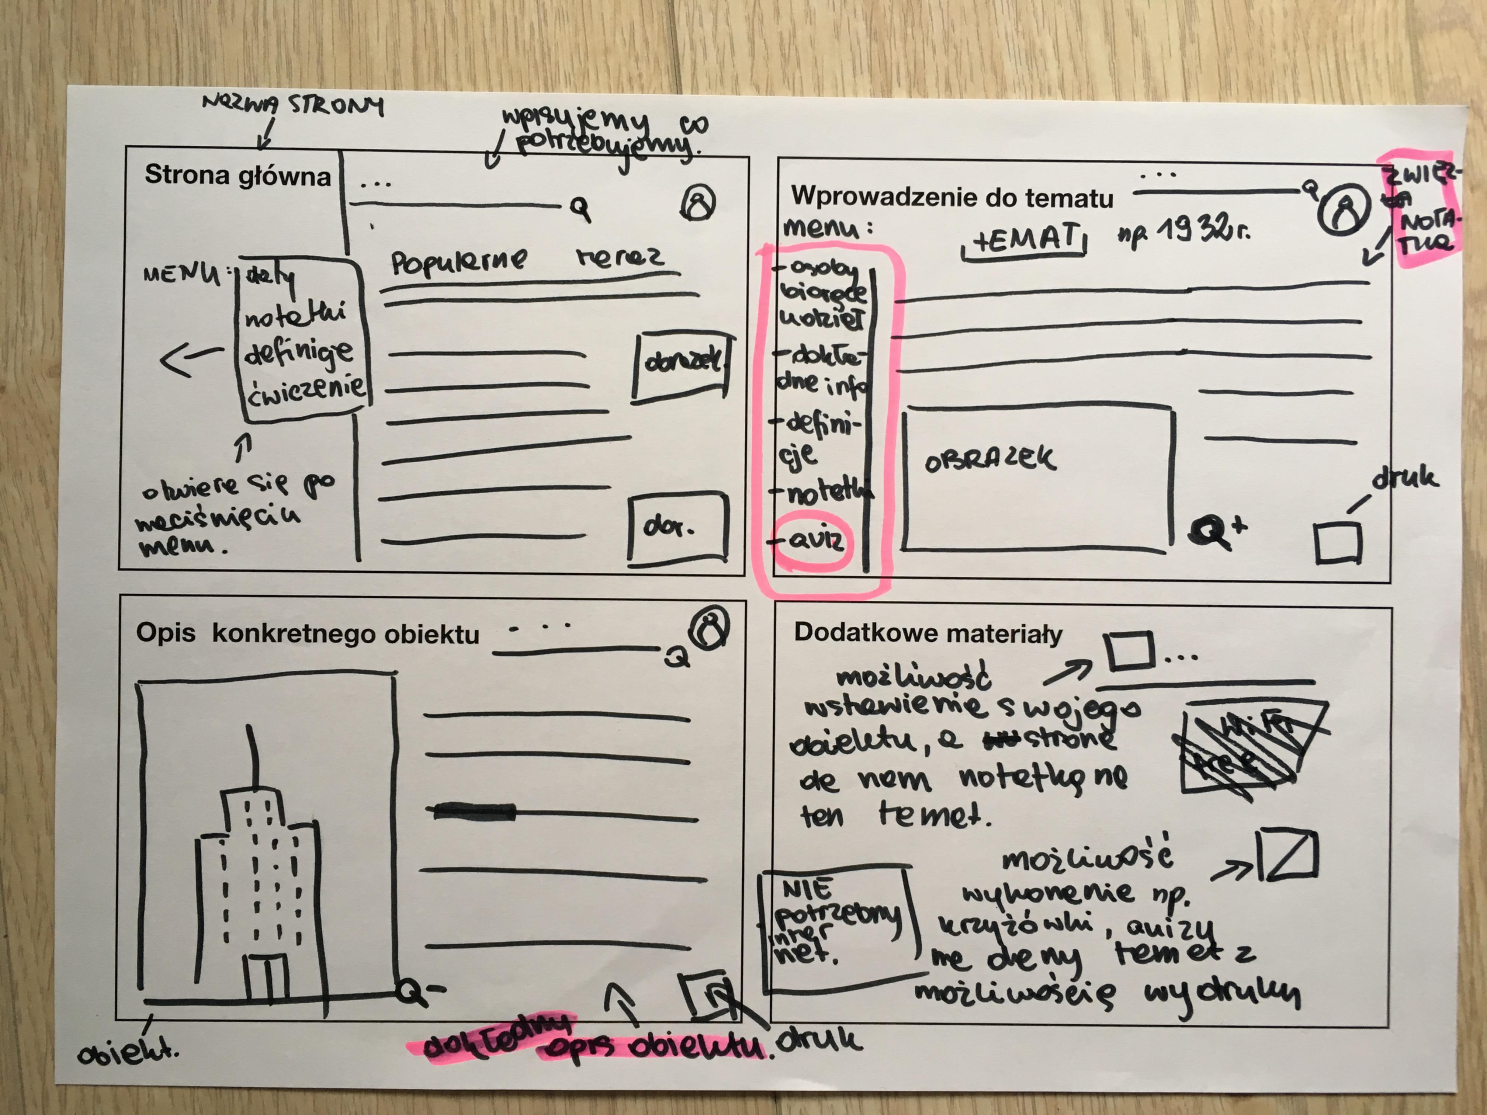 NAZWA STRONY
wpisujemy co
potrzebujemy.
Strona główna
...
MENU:
daty
notatki
definicje
ćwiczenie
otwiera się po
naciśnięciu
menu.
Popularne teraz
obrazek
obr.
Wprowadzenie do tematu
...
ZWIĘZ-
ŁA
NOTA-
TKA
menu:
TEMAT np 1932 r.
- osoby
biorące
udział
- dokła-
dne info
- defini-
cje
- notatki
- quiz
OBRAZEK
+
druk
Opis konkretnego obiektu
...
-
obiekt.
dokładny
opis obiektu.
druk
Dodatkowe materiały
...
możliwość
wstawienie swojego
obiektu, a strona
da nam notatkę na
ten temat.
możliwość
wykonania np.
krzyżówki, quizy
na dany temat z
możliwością wydruku
NIE
potrzebny
inter
net.